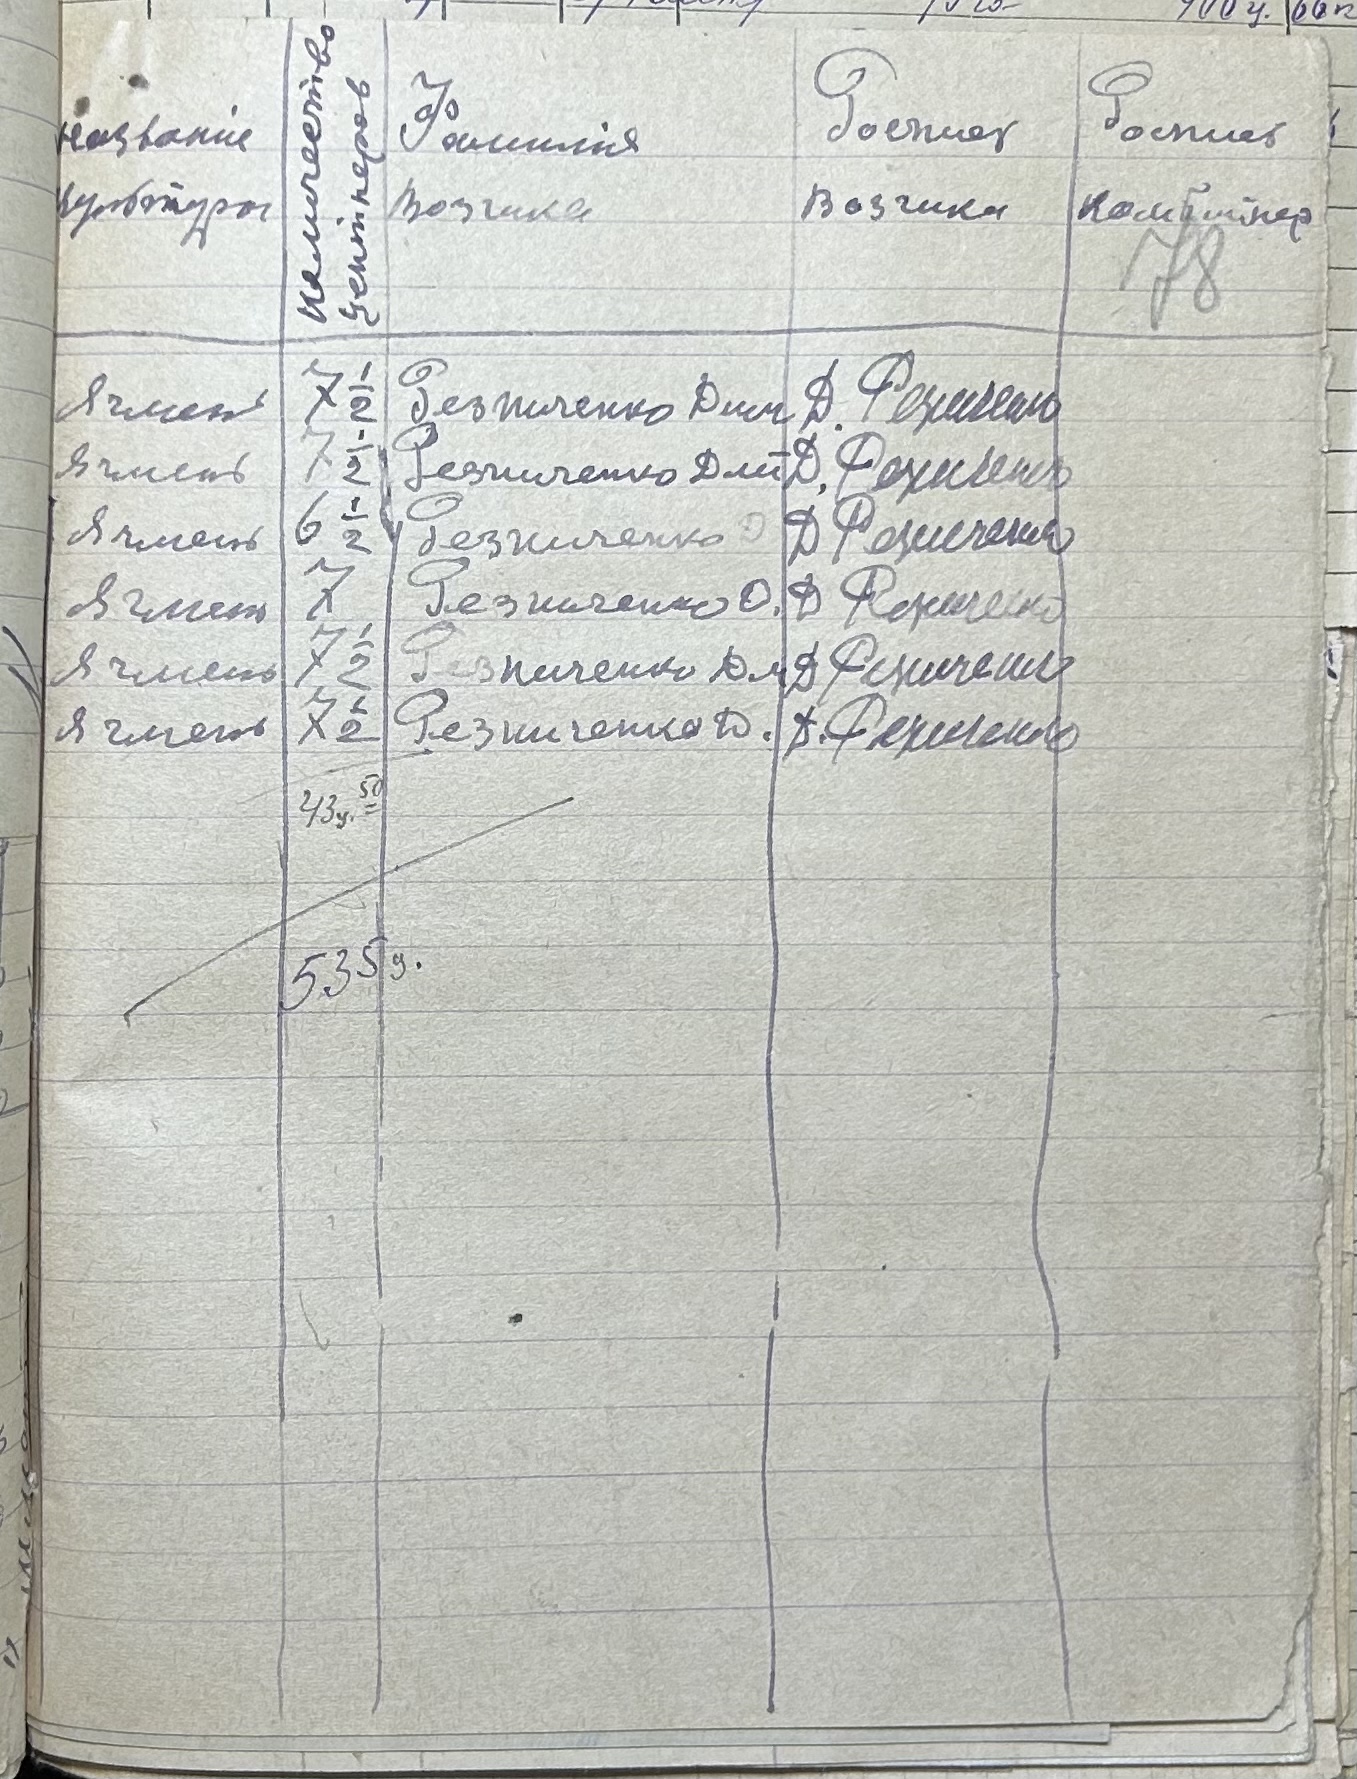 Названіе культуры
Количество центнеров
Фамилия Возчика
Роспись Возчика
Роспись Комбайнер
78
Ячмень 7 1/2 Резниченко Дми Д. Резниченко
Ячмень 7 1/2 Резниченко Дми Д. Резниченко
Ячмень 6 1/2 Резниченко Д Д Резниченко
Ячмень 7 Резниченко Д. Д Резниченко
Ячмень 7 1/2 Резниченко Дм Д Резниченко
Ячмень 7 1/2 Резниченко Д. Д. Резниченко
43ц. 50
535 ц.